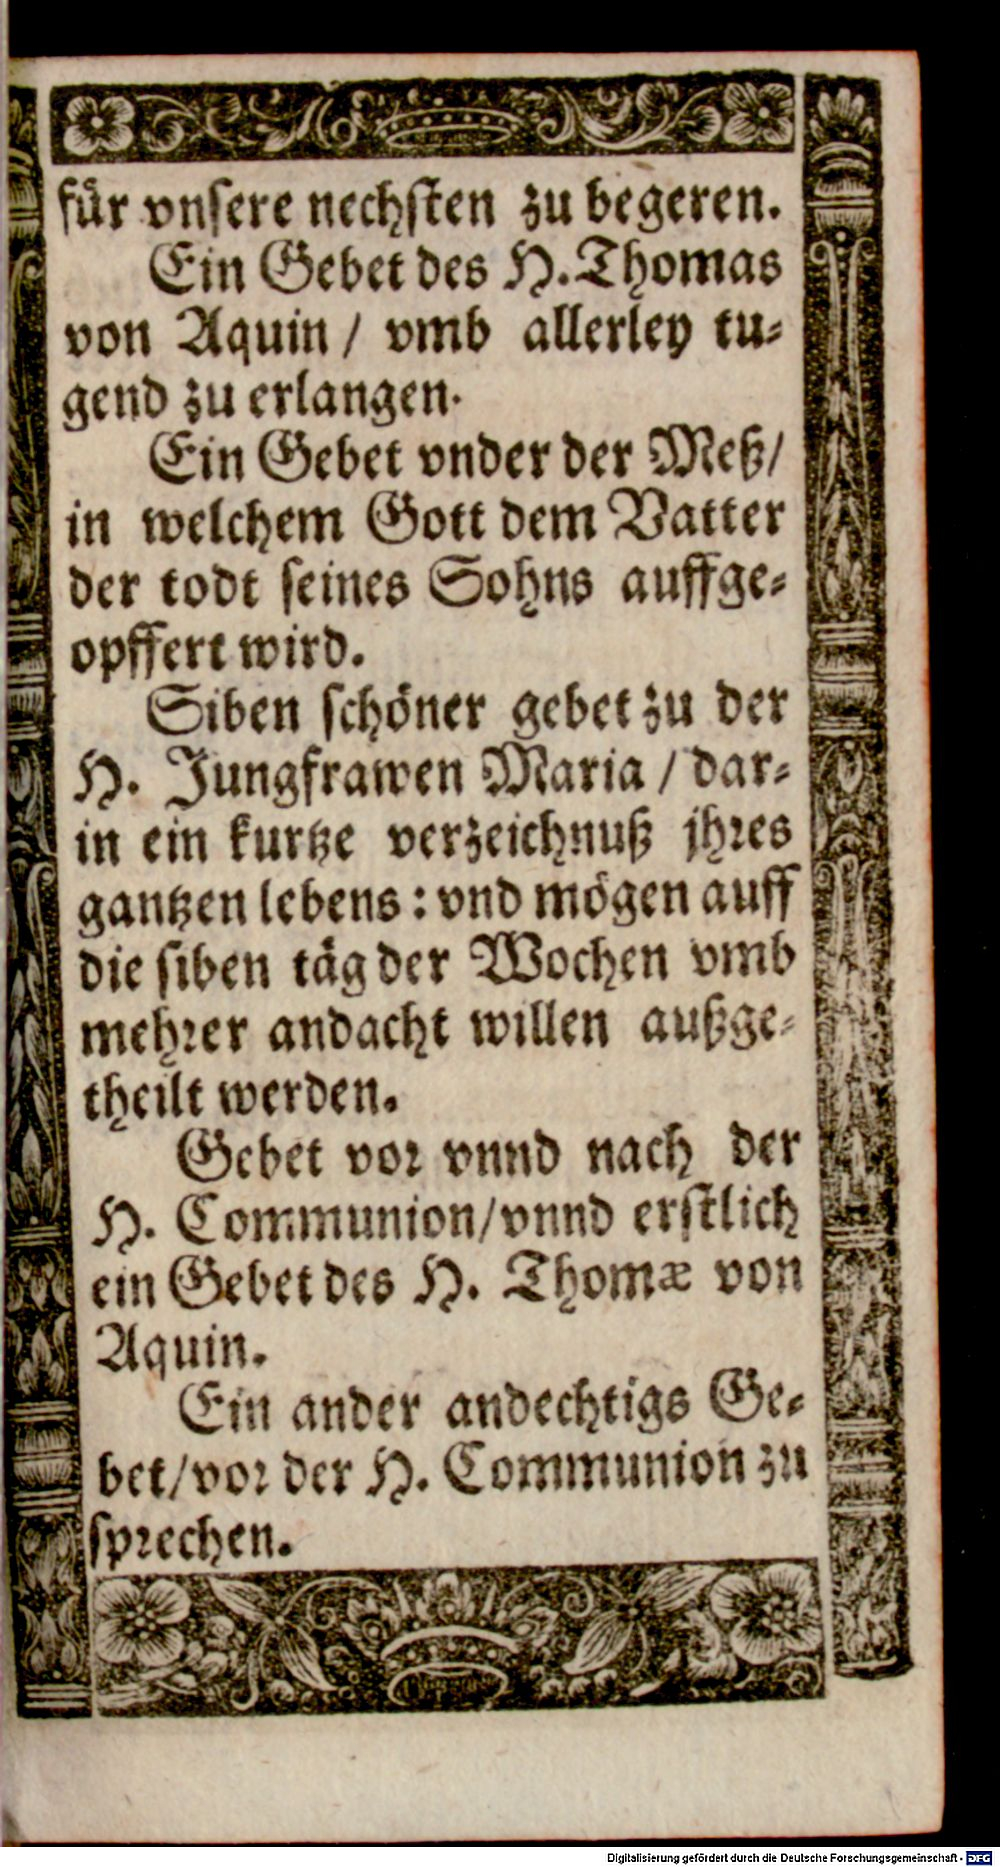 für vnsere nechsten zu begeren.
Ein Gebet des H. Thomas
von Aquin / vmb allerley tu-
gend zu erlangen.
Ein Gebet vnder der Meß/
in welchem Gott dem Vatter
der todt seines Sohns auffge-
opffert wird.
Siben schöner gebet zu der
H. Jungfrawen Maria / dar-
in ein kurtze verzeichnuß jhres
gantzen lebens : vnd mögen auff
die siben täg der Wochen vmb
mehrer andacht willen außge-
theilt werden.
Gebet vor vnnd nach der
H. Communion/vnnd erstlich
ein Gebet des H. Thomæ von
Aquin.
Ein ander andechtigs Ge-
bet/vor der H. Communion zu
sprechen.
Digitalisierung gefördert durch die Deutsche Forschungsgemeinschaft - DFG